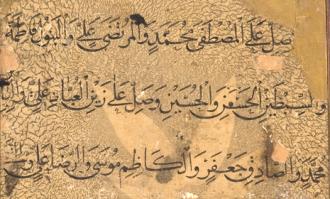 صل على المصطفى محمد والمرتضى على والبتول فاطمة
والسبطين الحسن والحسين وصل على زين العباد على والباقر
محمد والصادق جعفر والكاظم موسى والرضا على